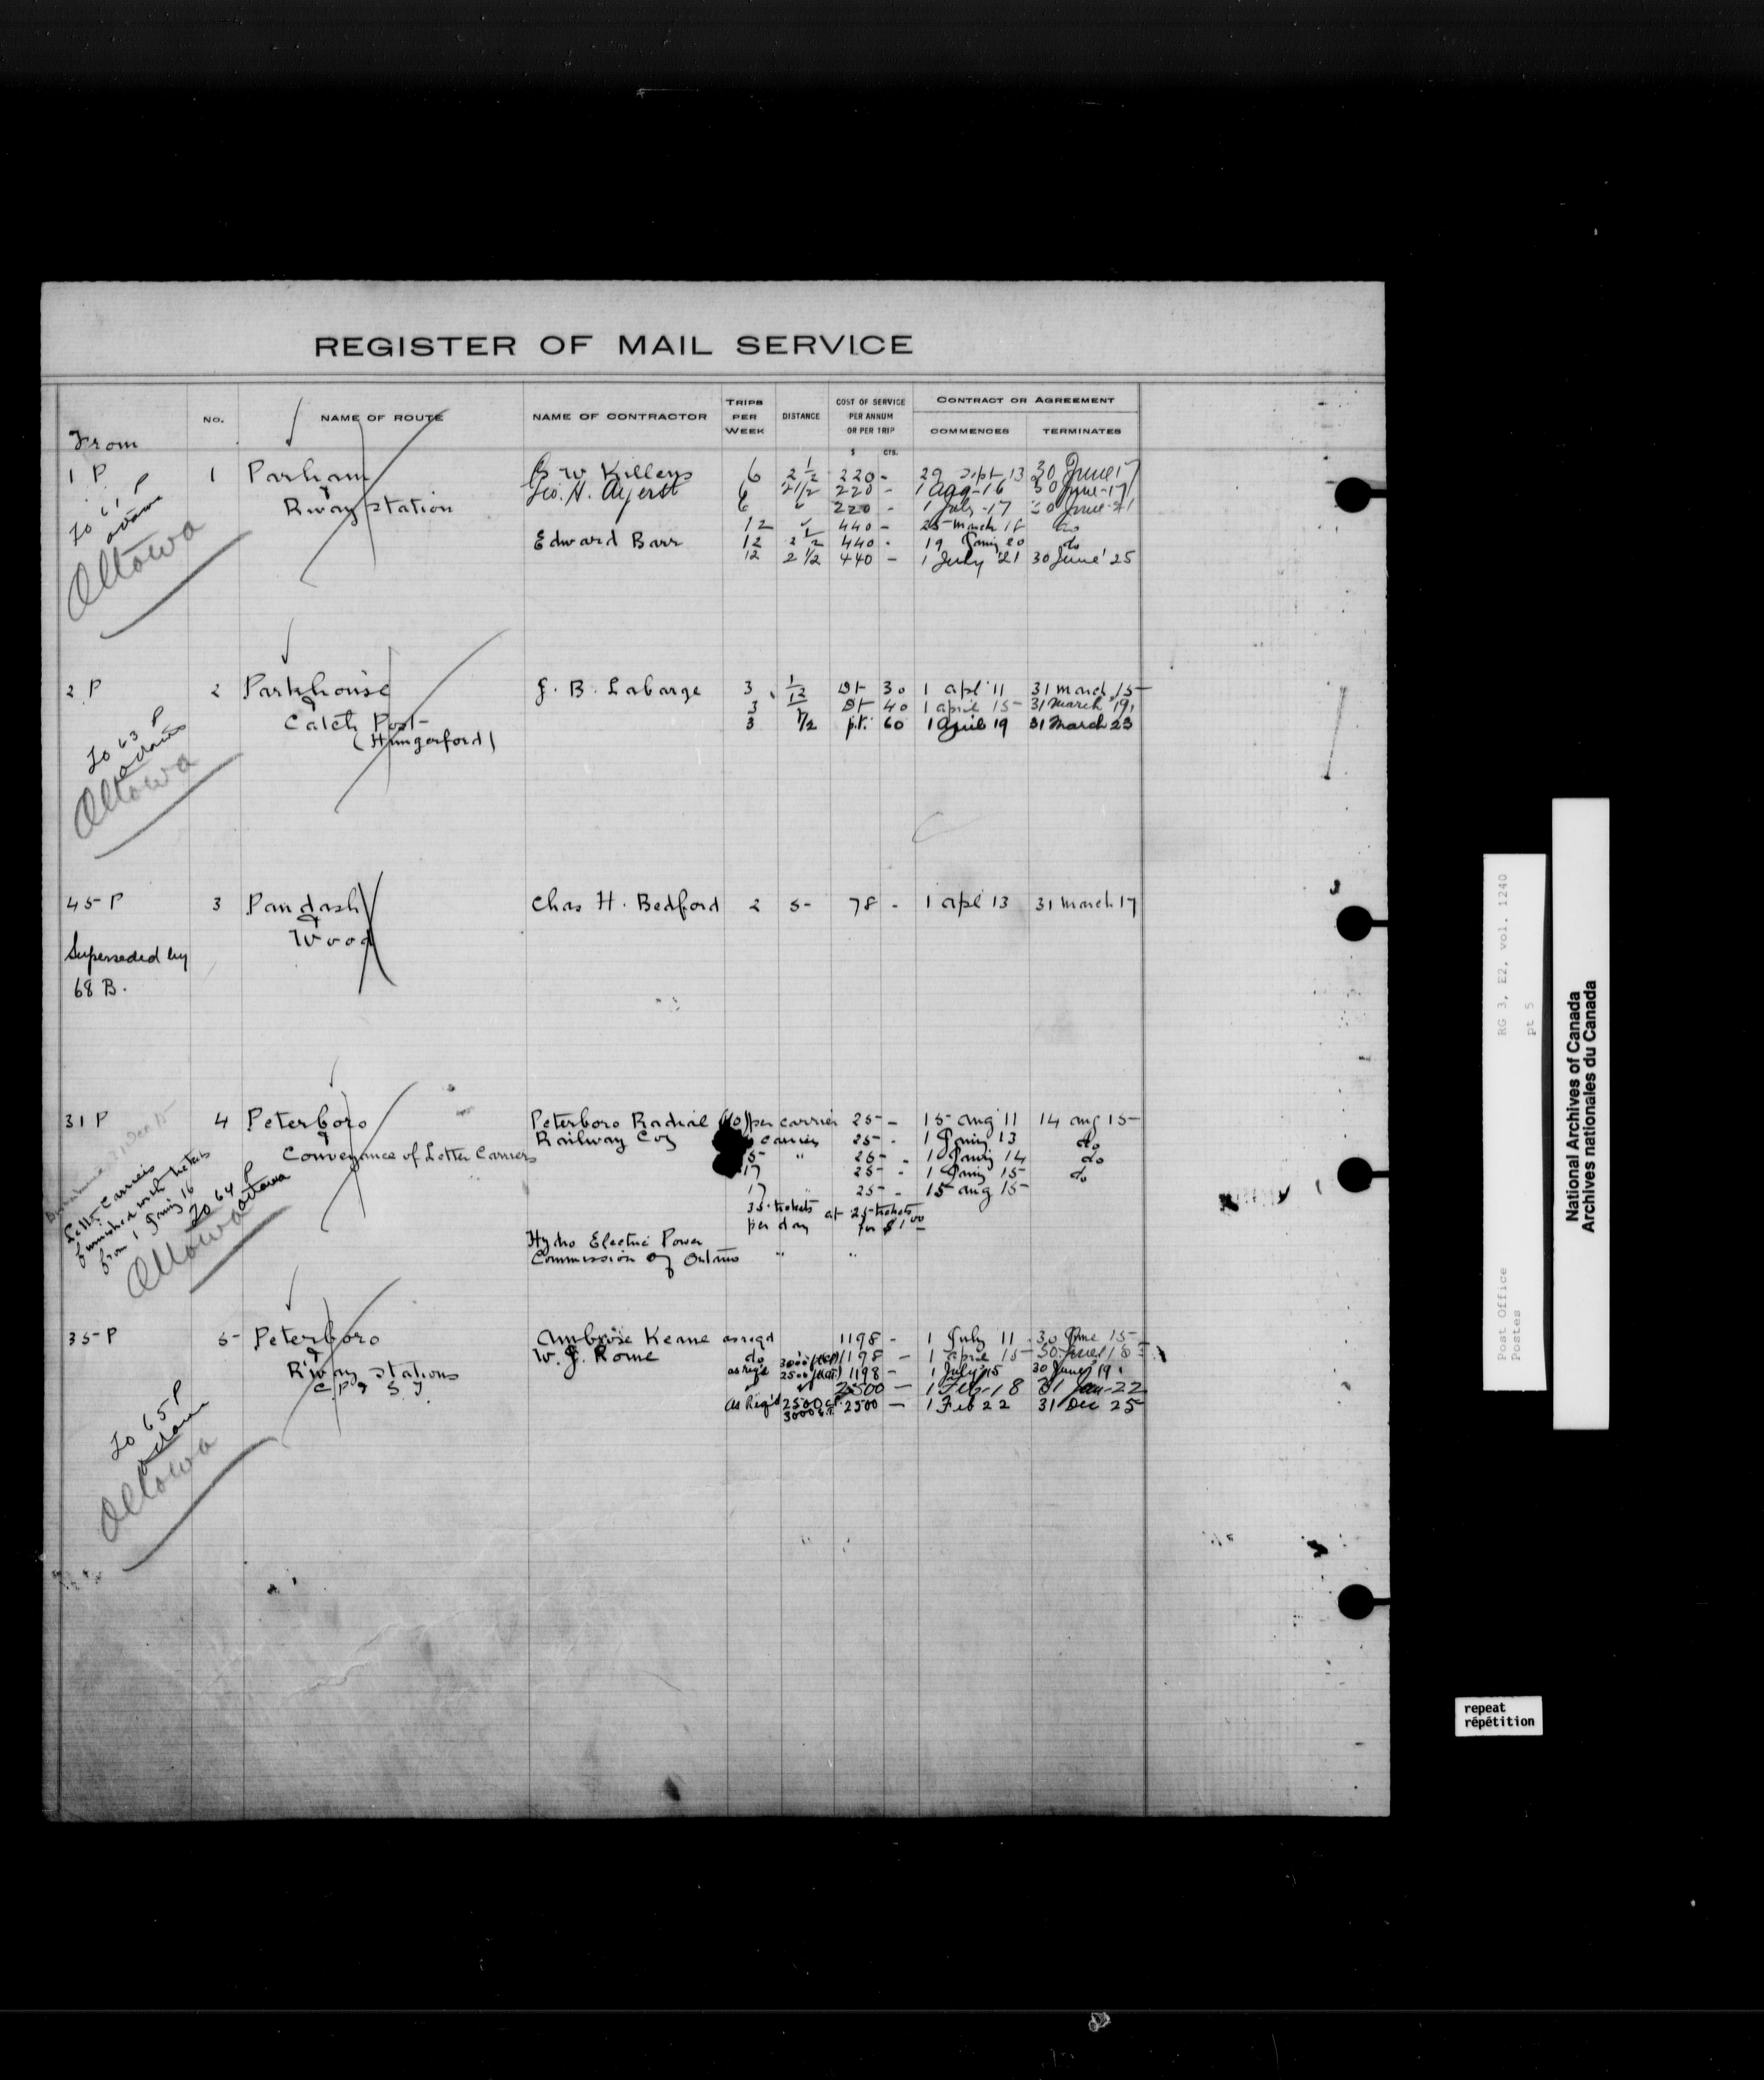 REGISTER OF MAIL SERVICE
From
NO.
NAME OF ROUTE
NAME OF CONTRACTOR
TRIPS PER WEEK
DISTANCE
COST OF SERVICE PER ANNUM OR PER TRIP
$ CTS.
CONTRACT OR AGREEMENT
COMMENCES
TERMINATES
1 P 1 Parham B W Killens 6 2 1/2 220 - 29 Sept 13 30 June 17
& Geo. H. Ayerst 6 2 1/2 220 - 1 Aug-16 30 June-17
Rway Station 6 220 - 1 July-17 30 June-21
12 440 - 25 March 18 do
Edward Barr 12 2 1/2 440 - 19 Jany 20 do
12 2 1/2 440 - 1 July '21 30 June '25
To 61 P
Ottawa
2 P 2 Parkhouse J. B. Labarge 3 1/2 Dt 30 1 apl 11 31 march 15
& 3 Dt 40 1 april 15 31 March 19
Catch Post 3 1/2 p.t. 60 1 April 19 31 March 23
(Hungerford)
To 63 P
Ottawa
45 P 3 Paudash Chas H. Bedford 2 5 78 - 1 apl 13 31 march 17
&
Wood
Superseded by
68 B.
31 P 4 Peterboro Peterboro Radial (10) per carrier 25 - 15 aug 11 14 aug 15
& Railway Coy carrier 25 - 1 Jany 13 do
Conveyance of Letter Carriers 15 " 25 - 1 Jany 14 do
17 25 - 1 Jany 15 do
17 25 - 15 aug 15
35 tickets at 25 tickets
per day for $1.00
Hydro Electric Power
Commission of Ontario " "
Letter Carriers
furnished with tickets
from 1 Jany 16
To 64 P
Ottawa
Ottawa
35 P 5 Peterboro Ambrose Keane as reqd 1198 - 1 July 11 30 June 15
& W. J. Rome do 1198 - 1 april 15 30 June 18
Rway Stations as reqd 1198 - 1 July 15 30 June 19
C. P. & G. T. 2500 - 1 Feb-18 31 Jan-22
As Req'd 2500 C.P. 2500 - 1 Feb 22 31 Dec 25
3000 G.T.
To 65 P
Ottawa
Post Office
Postes
RG 3, E2, vol. 1240
pt 5
National Archives of Canada
Archives nationales du Canada
repeat
répétition